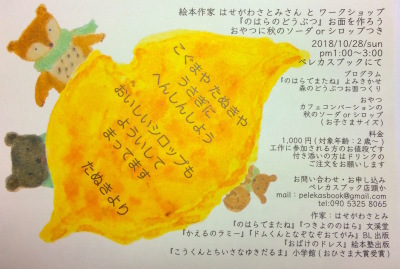 絵本作家 はせがわさとみさん と ワークショップ
『のはらのどうぶつ』お面を作ろう
おやつに秋のソーダ or シロップつき
2018/10/28/sun
pm1:00〜3:00
ペレカスブックにて
プログラム
『のはらでまたね』よみきかせ
森のどうぶつお面づくり
おやつ
カフェコンバーションの
秋のソーダ or シロップ
(お子さまサイズ)
料金
1,000円(対象年齢:2歳〜)
工作に参加される方のお値段です
付き添いの方はドリンクの
ご注文をお願いします
お問い合わせ・お申し込み
ペレカスブック店頭か
mail:pelekasbook@gmail.com
tel:090 5325 8065
作家:はせがわさとみ
『のはらでまたね』『つきよのはらで』文溪堂
『かえるのラミー』『ドムくんとなぞなぞおてがみ』BL出版
『おばけのドレス』絵本塾出版
『こうくんとちいさなゆきだるま』小学館(おひさま大賞受賞)
こぐまや たぬきや
うさぎに
へんしんしよう
おいしいシロップも
よういして
まってます
たぬきより